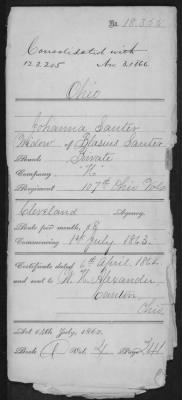 No. 18.355
Consolidated with
122205
Ohio
Johanna Santer
Widow of Blasius Santer
Rank Private
Company
Regiment 107th Ohio Vols
Cleveland Agency.
Rate per month, $8
Commencing 1st July 1863.
Certificate dated 6th April 1864
and sent to W. K. Alexander
Canton
Ohio
Act 14th July, 1862.
Book A Vol. 4 Page